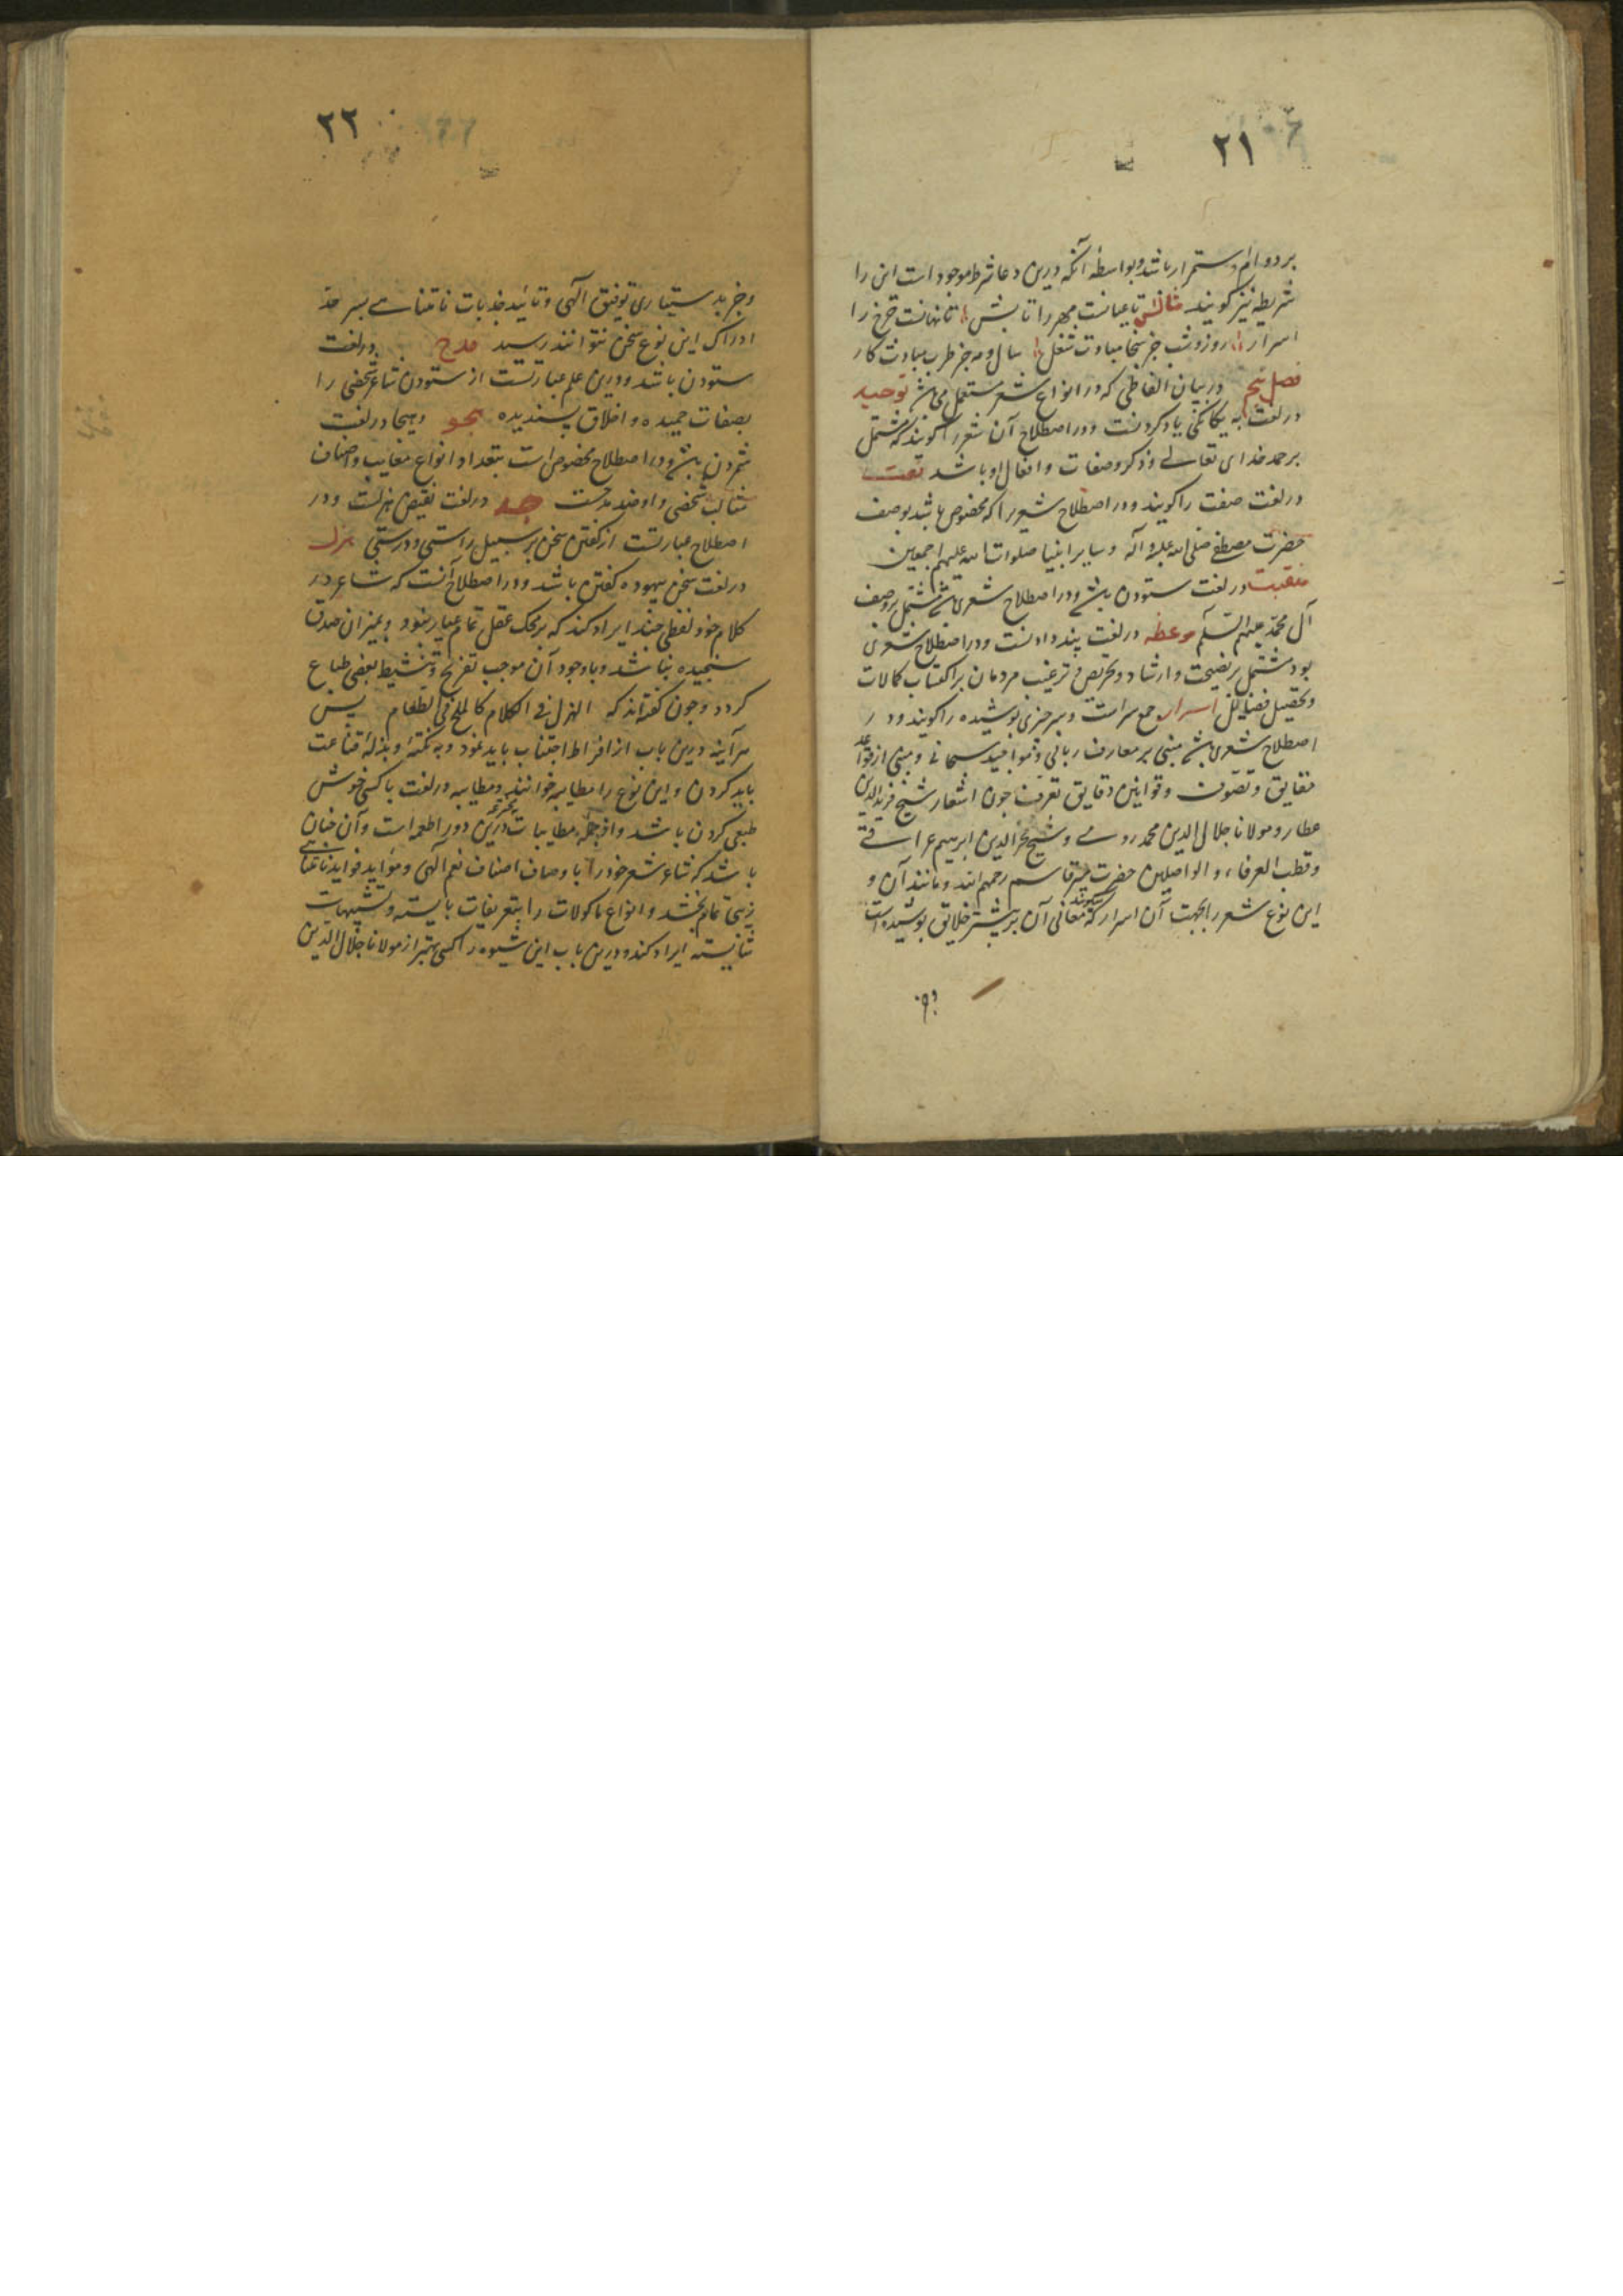 ۲۱
بر دوام و استمرار باشد و بواسطه آنکه درین دعا شرط موجود است این را
شریطه نیز گویند مثالش تا عیانست مهر را تابش تا نهانست چرخ را
اسرار روز و شب جز سخا مبادت شغل سال و مه جز طرب مبادت کار
فصل پنجم در بیان الفاظی که در انواع شعر مستعمل می باشد توحید
در لغت به یکانکی یاد کردنست و در اصطلاح آن شعر را کویند که مشتمل
بر حمد خدای تعالی و ذکر صفات و افعال او باشد نعت
در لغت صفت را کویند و در اصطلاح شعریرا که مخصوص باشد بوصف
حضرت مصطفی صلی الله علیه و آله و سایر انبیا صلوات الله علیهم اجمعین
منقبت در لغت ستودن باشد و در اصطلاح شعری باشد مشتمل بر وصف
آل محمد علیهم السلام موعظه در لغت پند دادنست و در اصطلاح شعری
بود مشتمل بر نصیحت و ارشاد و تحریص و ترغیب مردمان بر اکتساب کمالات
و تحصیل فضایل اسرار جمع سر است و سر چیزی پوشیده را کویند و در
اصطلاح شعری باشد مبنی بر معارف ربانی و مواجید سبحانی و مبنی از قواعد
حقایق و تصوف و قوانین دقایق تعرف چون اشعار شیخ فرید الدین
عطار و مولانا جلال الدین محمد رومی و شیخ فخر الدین ابرهیم عراقی
و قطب العرفاء و الواصلین حضرت میر قاسم رحمهم الله و مانند آن و
این نوع شعر را بجهت آن اسرار میکویند که معانی آن بر بیشتر خلایق پوشیده است
و جز
۲۲
و جز بدستیاری توفیق الهی و تائید جذبات نامتناهی بسر حد
ادراک این نوع سخن نتوانند رسید مدح در لغت
ستودن باشد و درین علم عبارتست از ستودن شاعر شخصی را
بصفات حمیده و اخلاق پسندیده هجو و هجا در لغت
شمردن باشد و در اصطلاح مخصوص است بتعداد انواع معایب و اصناف
مثالب شخصی و او ضد مدحست جد در لغت نقیض هزلست و در
اصطلاح عبارتست از کفتن سخن بر سبیل راستی و درستی هزل
در لغت سخن بیهوده کفتن باشد و در اصطلاح آنست که شاعر در
کلام خود لفظی چند ایراد کند که بر محک عقل تمام عیار نبود و بمیزان صدق
سنجیده نباشد و با وجود آن موجب تفریح و تنشیط بعضی طباع
کردد و چون کفته‌اند که الهزل فی الکلام کالملح فی الطعام پس
هر آینه درین باب از افراط اجتناب باید نمود و به نکته و بذله قناعت
باید کردن و این نوع را مطایبه خوانند و مطایبه در لغت با کسی خوش
طبعی کردن باشد و از جمله مطایبات درین دور اطعمه است و آن چنان
باشد که شاعر شعر خود را با وصاف اصناف نعم الهی و مؤاید فواید نامتناهی
زینتی تمام بخشد و انواع ماکولات را بتعریفات بایسته و تشبیهات
شایسته ایراد کند و درین باب این شیوه را کسی بهتر از مولانا جلال الدین